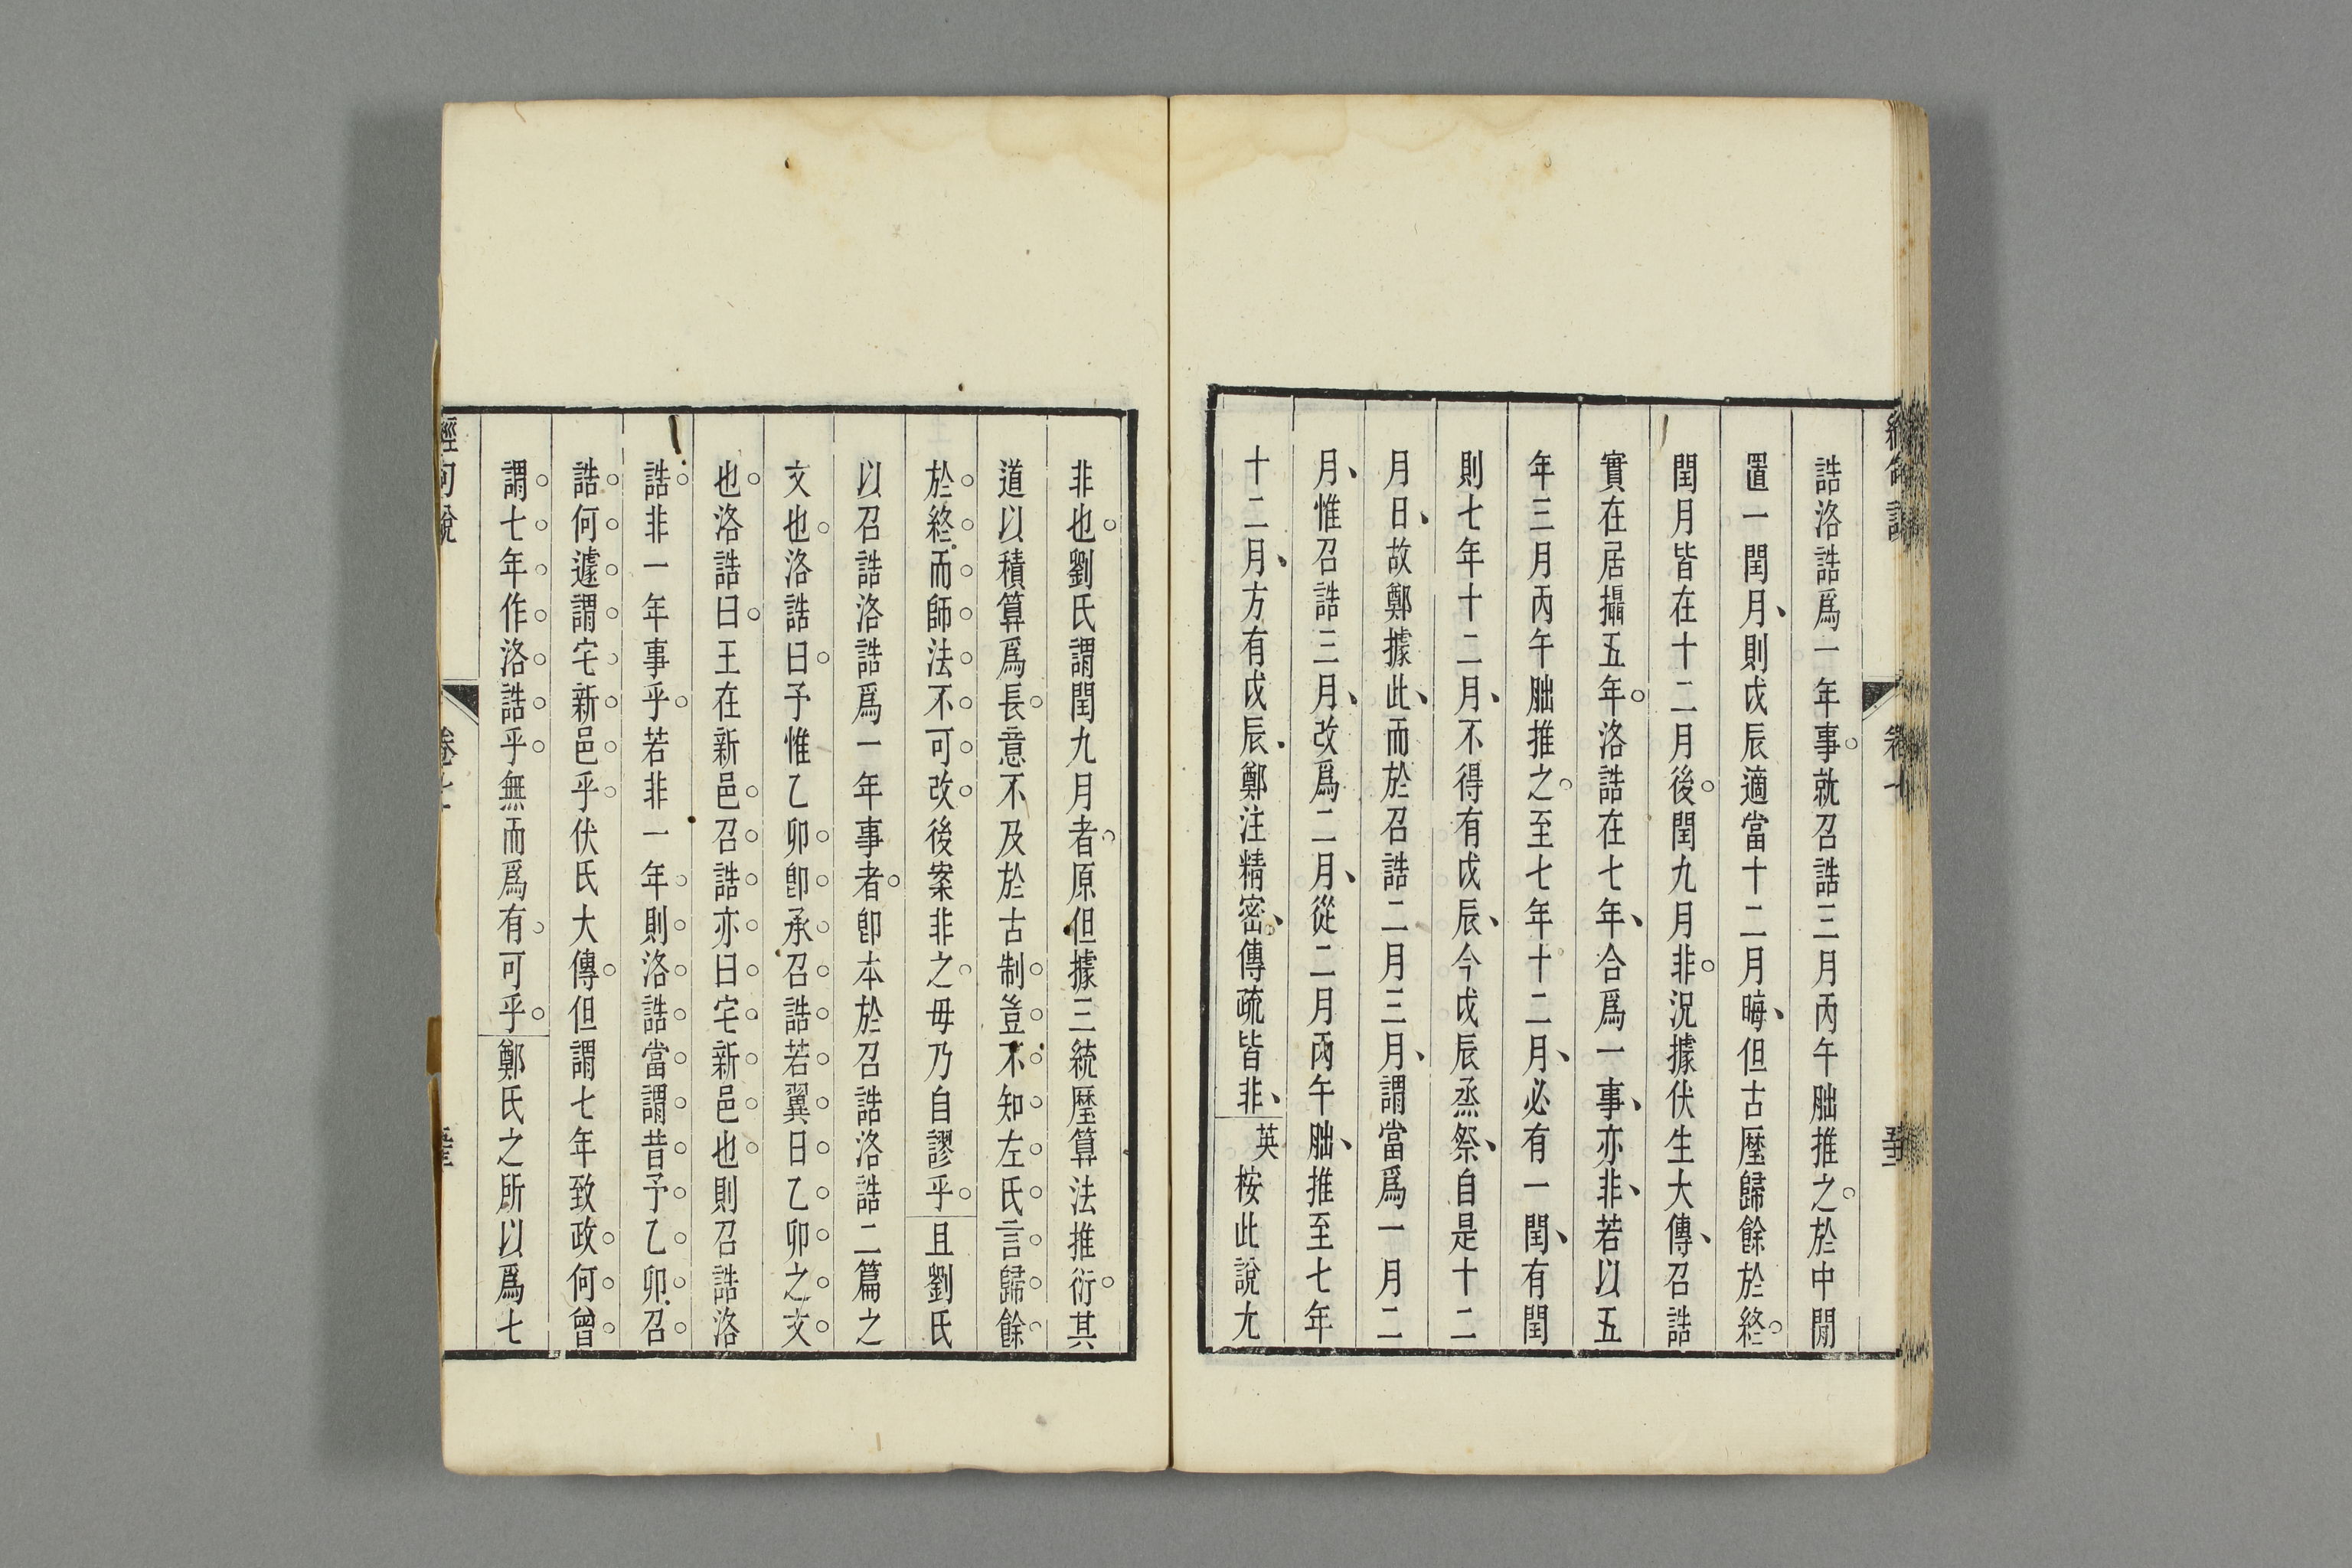 誥洛誥爲一年事就召誥三月丙午朏推之於中閒
置一閏月則戊辰適當十二月晦但古厯歸餘於終
閏月皆在十二月後閏九月非況據伏生大傳召誥
實在居攝五年洛誥在七年合爲一事亦非若以五
年三月丙午朏推之至七年十二月必有一閏有閏
則七年十二月不得有戊辰今戊辰烝祭自是十二
月日故鄭據此而於召誥二月三月謂當爲一月二
月惟召誥三月改爲二月從二月丙午朏推至七年
十二月方有戊辰鄭注精密傳疏皆非英桉此說尤
非也劉氏謂閏九月者原但據三統厯算法推衍其
道以積算爲長意不及於古制豈不知左氏言歸餘
於終而師法不可改後案非之毋乃自謬乎且劉氏
以召誥洛誥爲一年事者卽本於召誥洛誥二篇之
文也洛誥曰予惟乙卯卽承召誥若翼日乙卯之文
也洛誥曰王在新邑召誥亦曰宅新邑也則召誥洛
誥非一年事乎若非一年則洛誥當謂昔予乙卯召
誥何遽謂宅新邑乎伏氏大傳但謂七年致政何曾
謂七年作洛誥乎無而爲有可乎鄭氏之所以爲七